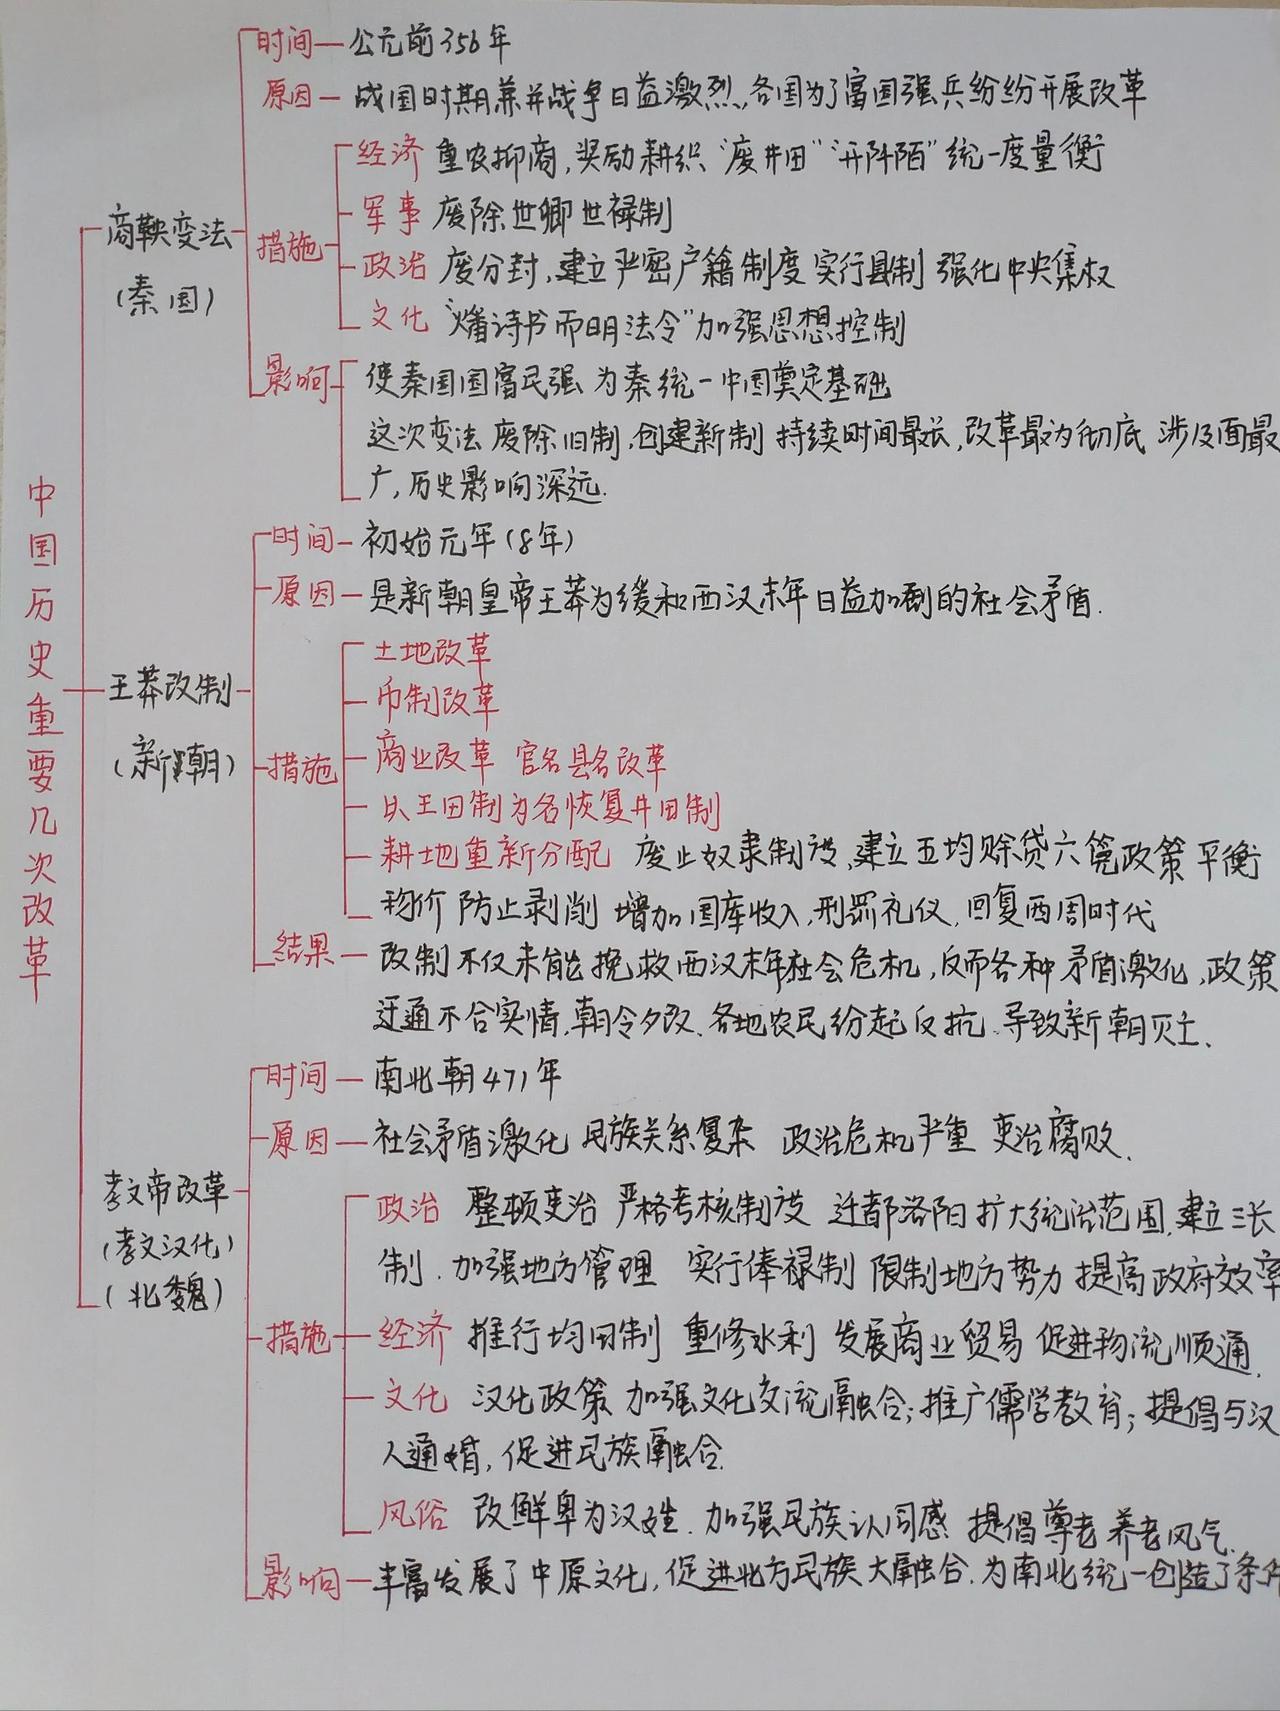 中国历史重要几次改革
商鞅变法
(秦国)
时间 — 公元前356年
原因 — 战国时期兼并战争日益激烈,各国为了富国强兵纷纷开展改革
措施
经济 重农抑商,奖励耕织 "废井田" "开阡陌" 统一度量衡
军事 废除世卿世禄制
政治 废分封,建立严密户籍制度 实行县制 强化中央集权
文化 "燔诗书而明法令"加强思想控制
影响
使秦国国富民强 为秦统一中国奠定基础
这次变法 废除旧制,创建新制 持续时间最长,改革最为彻底 涉及面最
广,历史影响深远.
王莽改制
(新朝)
时间 — 初始元年(8年)
原因 — 是新朝皇帝王莽为缓和西汉末年日益加剧的社会矛盾.
措施
土地改革
币制改革
商业改革 官名县名改革
以王田制为名恢复井田制
耕地重新分配 废止奴隶制度,建立五均赊贷六筦政策 平衡
物价 防止剥削 增加国库收入,刑罚礼仪,回复西周时代
结果 — 改制不仅未能挽救西汉末年社会危机,反而各种矛盾激化,政策
迂通不合实情,朝令夕改,各地农民纷起反抗、导致新朝灭亡.
孝文帝改革
(孝文汉化)
(北魏)
时间 — 南北朝471年
原因 — 社会矛盾激化 民族关系复杂 政治危机严重 吏治腐败.
措施
政治 整顿吏治 严格考核制度 迁都洛阳 扩大统治范围,建立三长
制.加强地方管理 实行俸禄制 限制地方势力 提高政府效率
经济 推行均田制 重修水利 发展商业贸易 促进物流顺通.
文化 汉化政策 加强文化交流融合;推广儒学教育;提倡与汉
人通婚,促进民族融合.
风俗 改鲜卑为汉姓.加强民族认同感 提倡尊老养老风气.
影响 — 丰富发展了中原文化,促进北方民族大融合.为南北统一创造了条件